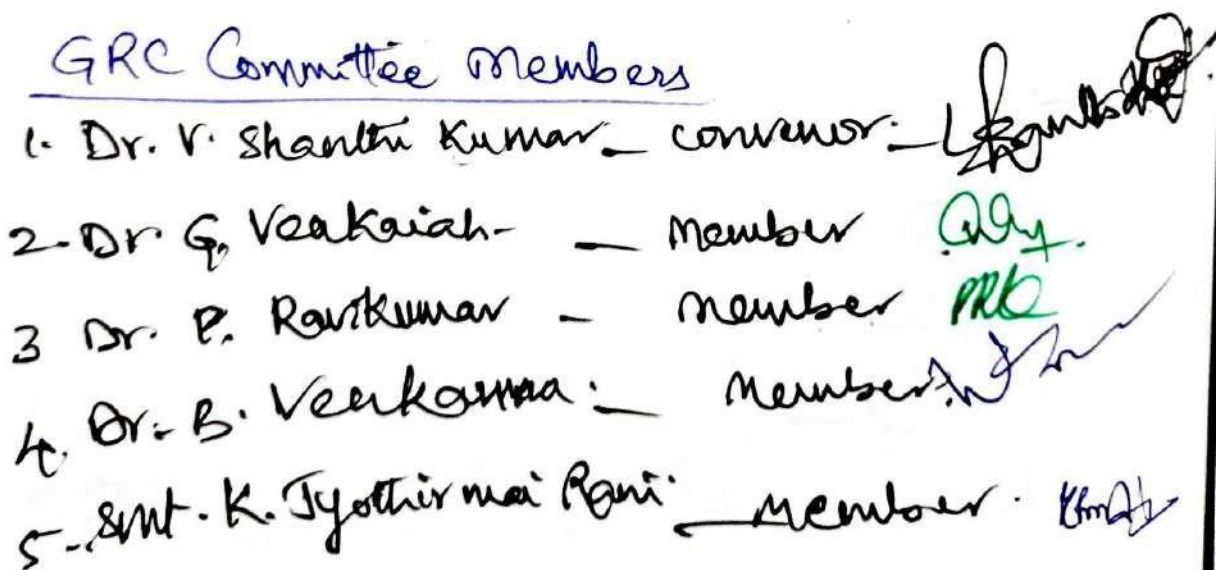 GRC Committee Members
1. Dr. V. Shanthi Kumar - convenor -
2. Dr. G. Venkaiah - Member
3 Dr. P. Ravikumar - Member PRK
4. Dr. B. Venkanna - Member
5. Smt. K. Jyothirmai Rani - Member.